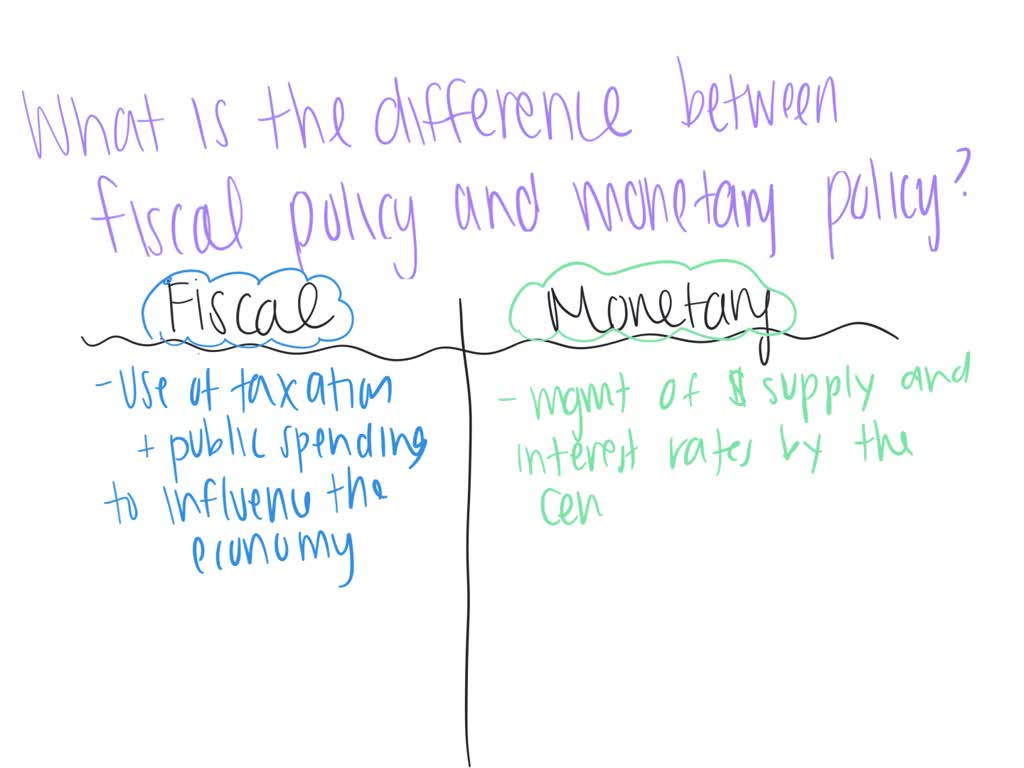 What is the difference between
fiscal policy and monetary policy?
Fiscal
Monetary
- Use of taxation
+ public spending
to influence the
economy
- mgmt of $ supply and
interest rates by the
cen